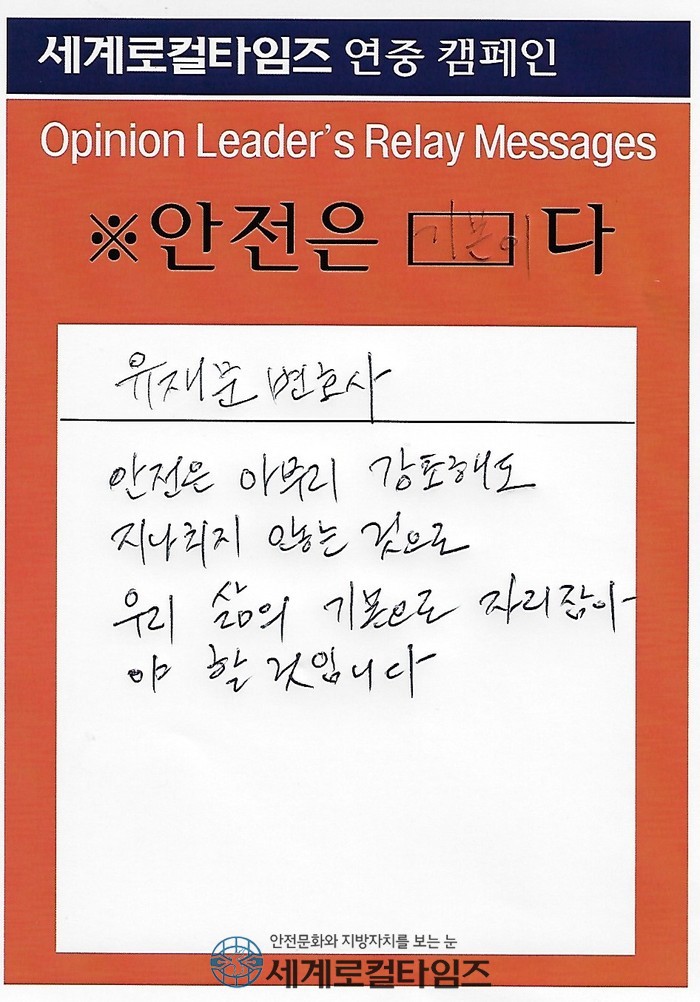 세계로컬타임즈 연중 캠페인
Opinion Leader's Relay Messages
※안전은 기본이다
유재문 변호사
안전은 아무리 강조해도
지나치지 않는 것으로
우리 삶의 기본으로 자리잡아
야 할 것입니다
안전문화와 지방자치를 보는 눈
세계로컬타임즈